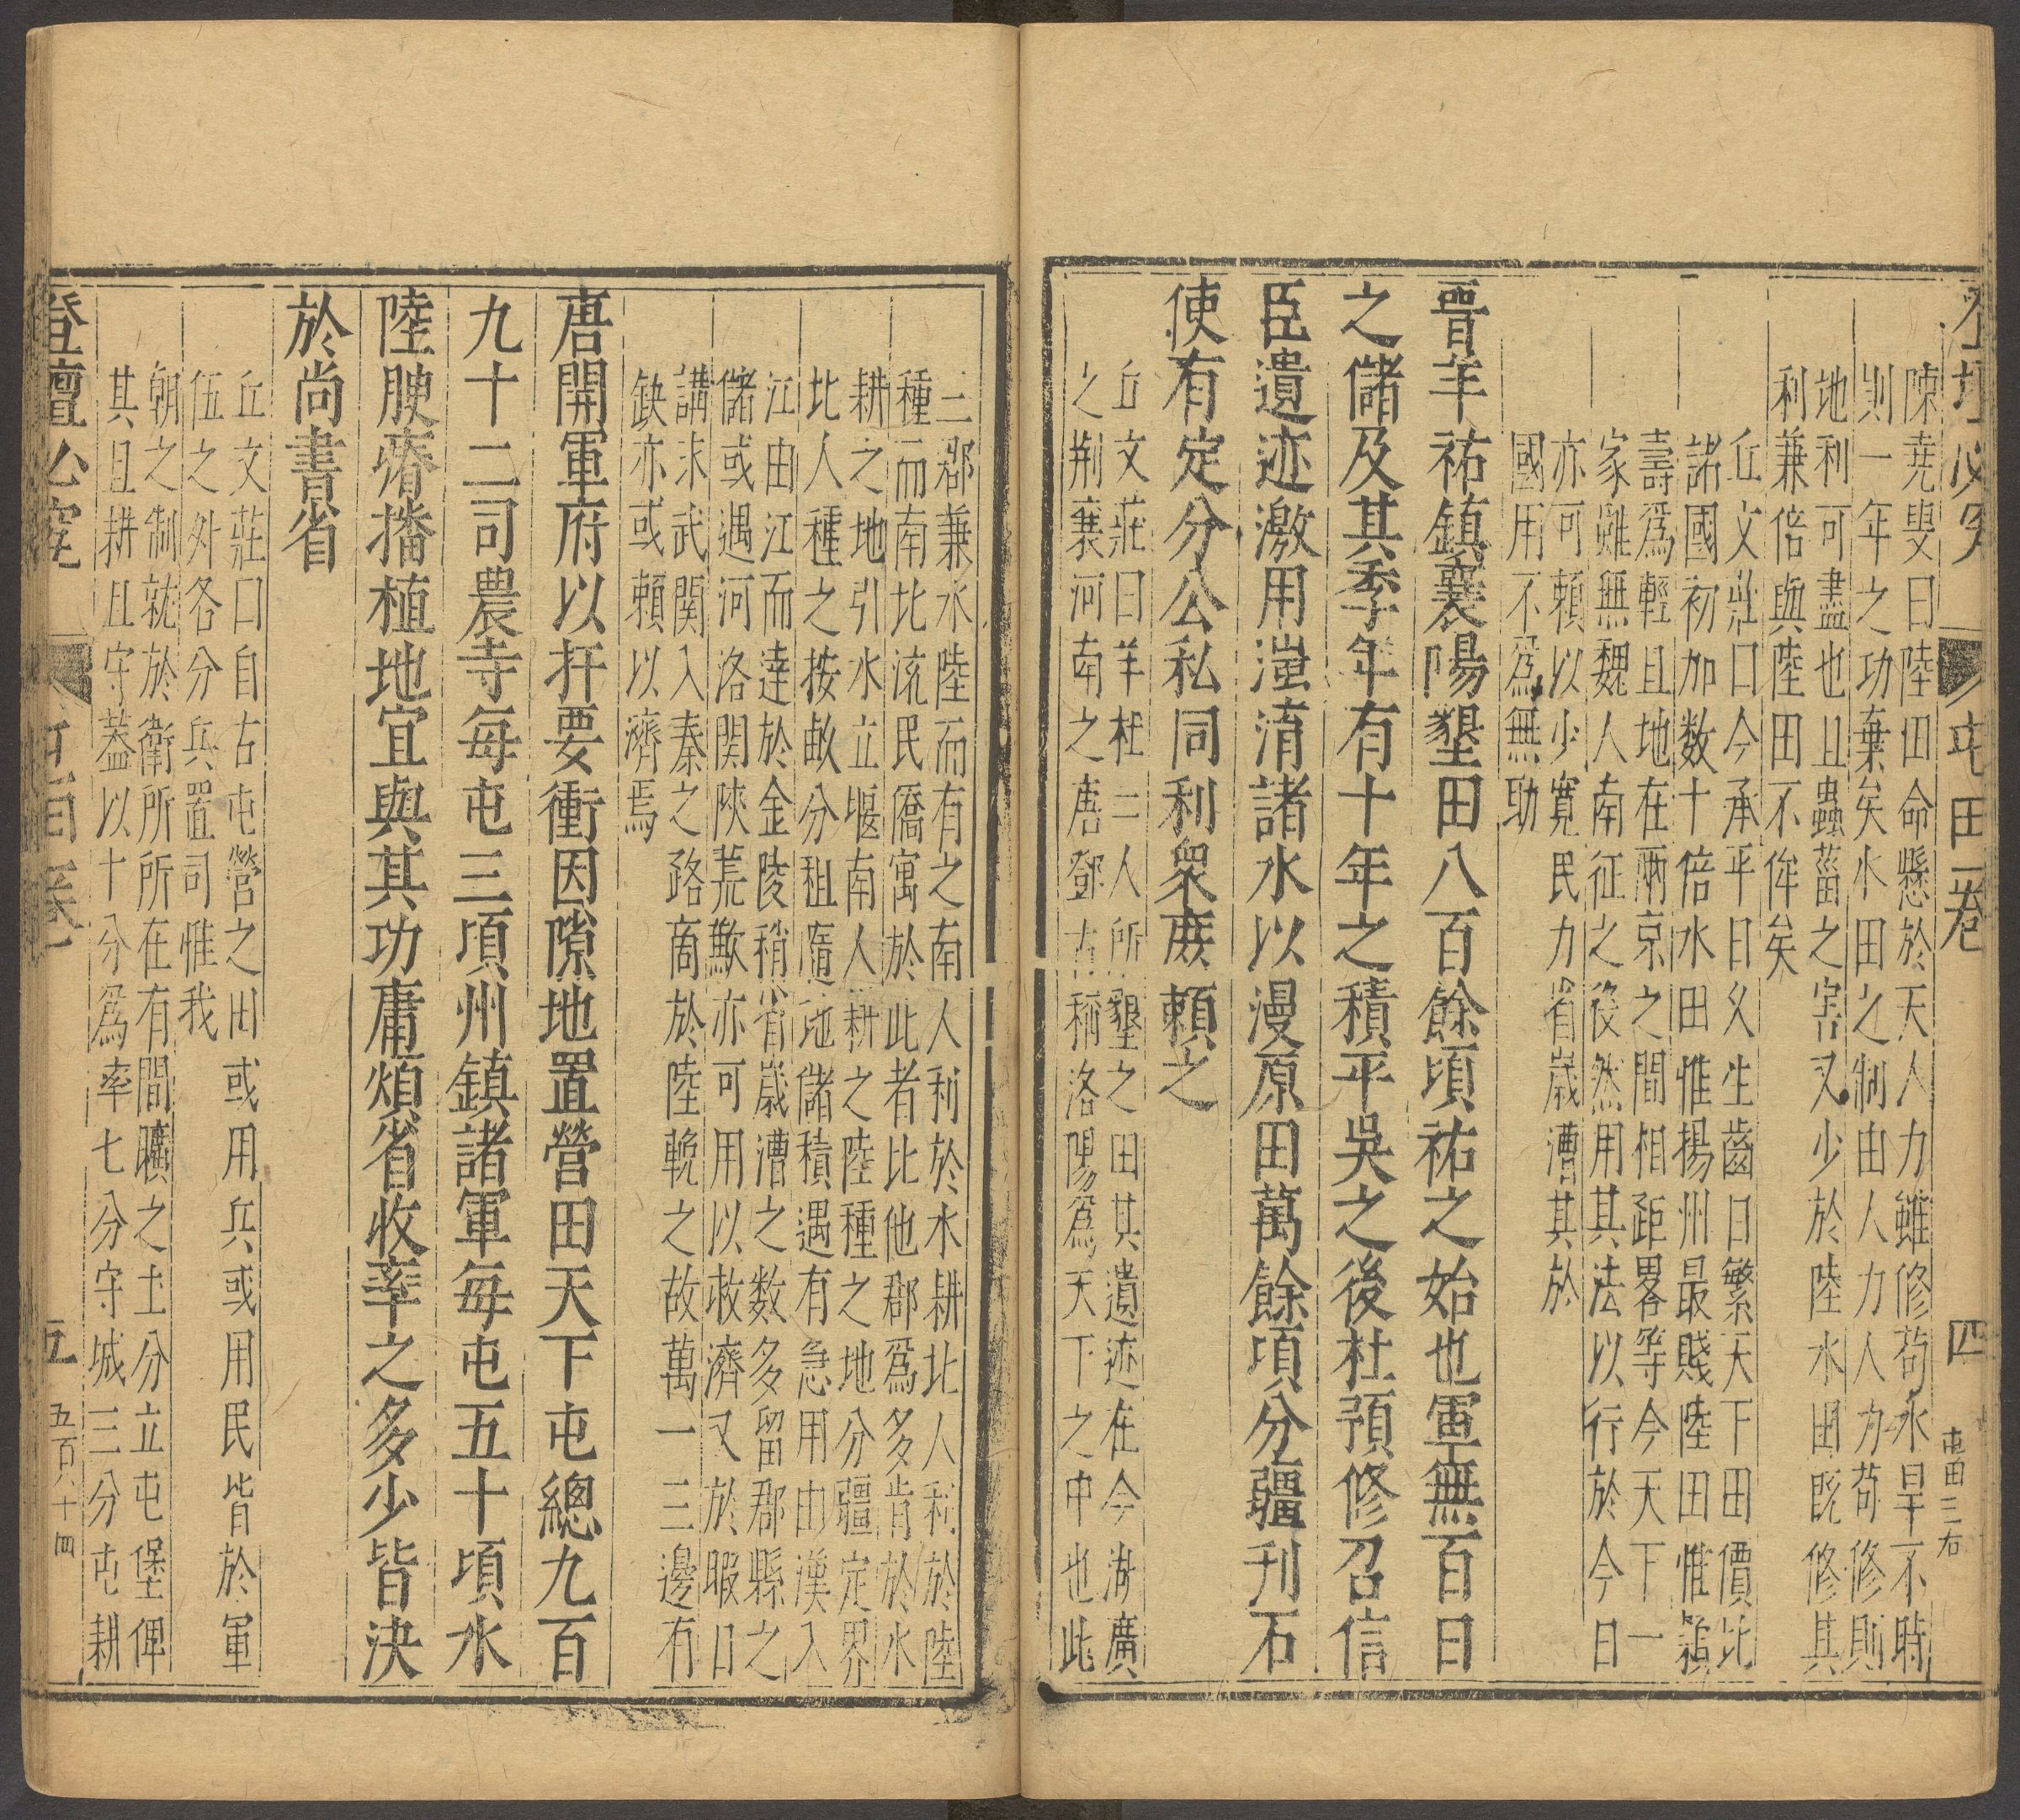 屯田一卷
四
屯田三右
陳堯叟曰陸田命懸於天人力雖修苟水旱不時
則一年之功棄矣水田之制由人力人力苟修則
地利可盡也且蟲菑之害又少於陸水田既修其
利兼倍與陸田不侔矣
丘文莊曰今承平日久生齒日繁天下田價比
諸國初加数十倍水田惟揚州最賤陸田惟潁
壽爲輕且地在兩京之間相距畧等今天下一
家雖無魏人南征之後然用其法以行於今日
亦可賴以少寬民力省歲漕其於
國用不爲無助
晋羊祜鎮襄陽墾田八百餘頃祜之始也軍無百日
之儲及其季年有十年之積平吳之後杜預修召信
臣遺迹激用滍淯諸水以漫原田萬餘頃分疆刊石
使有定分公私同利衆庶賴之
丘文莊曰羊杜二人所墾之田其遺迹在今湖廣
之荆襄河南之唐鄧古稱洛陽爲天下之中也此
三郡兼水陸而有之南人利於水耕北人利於陸
種而南北流民僑寓於此者比他郡爲多肯於水
耕之地引水立堰南人耕之陸種之地分疆定界
北人種之按畝分租隨地儲積遇有急用由漢入
江由江而達於金陵稍省歲漕之数多留郡縣之
儲或遇河洛関陝荒歉亦可用以救濟又於暇日
講求武関入秦之路商於陸輓之故萬一三邊有
缺亦或賴以濟焉
唐開軍府以扞要衝因隙地置營田天下屯總九百
九十二司農寺每屯三頃州鎮諸軍每屯五十頃水
陸腴瘠播植地宜與其功庸煩省收率之多少皆決
於尚書省
丘文莊曰自古屯營之田或用兵或用民皆於軍
伍之外各分兵置司惟我
朝之制就於衛所所在有間曠之土分立屯堡俾
其且耕且守葢以十分爲率七分守城三分屯耕
登壇必究
五
五百八十四